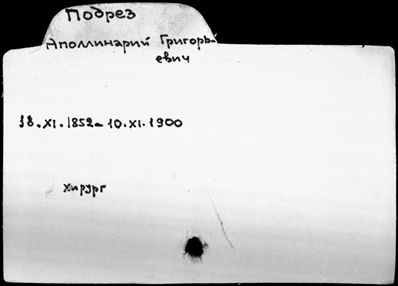 Подрез
Аполлинарий Григорь-
евич
18.XI.1852-10.XI.1900
хирург